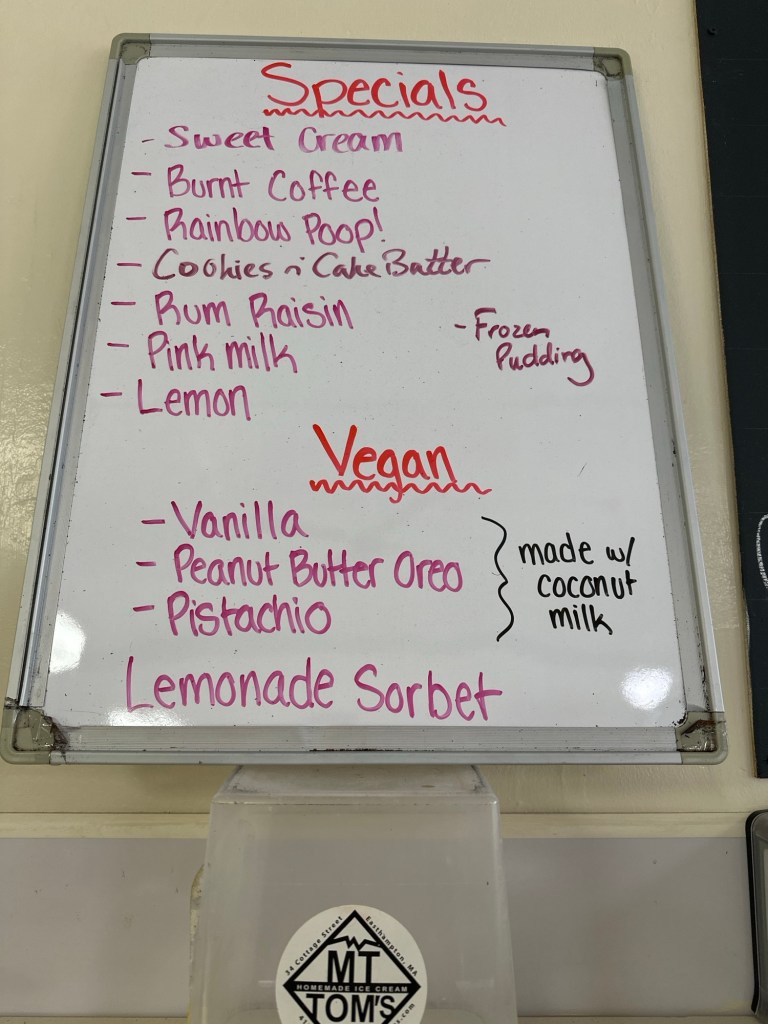 Specials
- Sweet Cream
- Burnt Coffee
- Rainbow Poop!
- Cookies n' Cake Batter
- Rum Raisin
- Pink milk
- Lemon
- Frozen
Pudding
Vegan
- Vanilla
- Peanut Butter Oreo
- Pistachio
made w/
coconut
milk
Lemonade Sorbet
34 Cottage Street
Easthampton, MA
MT
HOMEMADE ICE CREAM
TOM'S